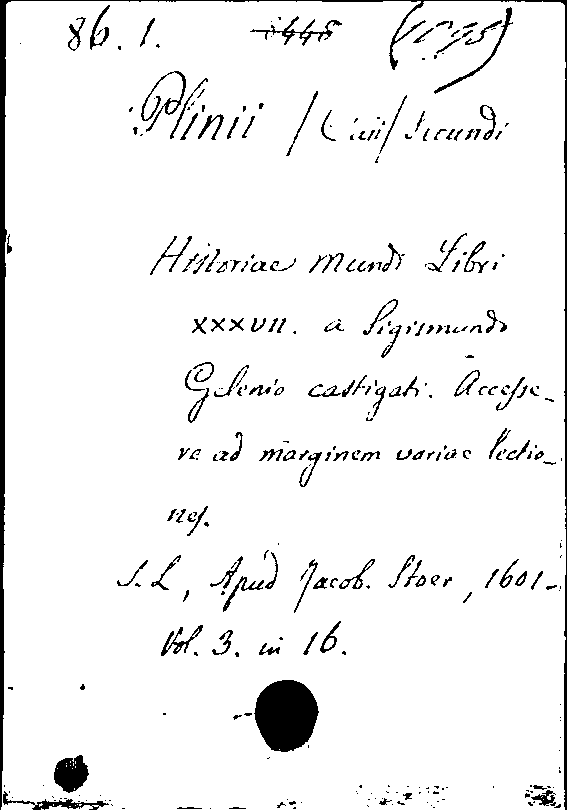 86. 1.
Plinii / Caii / Secundi
Historiae Mundi Libri
XXXVII. a Sigismundo
Gelenio castigati. Accesse-
re ad marginem variae lectio-
nes.
S. L, Apud Jacob. Stoer, 1601-
Vol. 3. in 16.